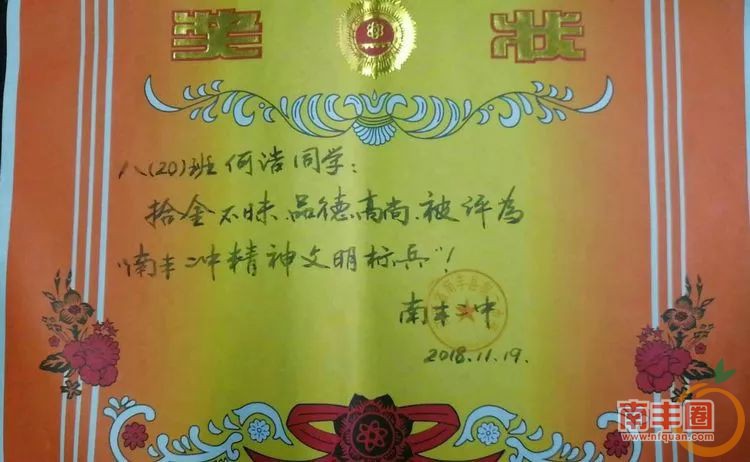 奖 状
八(20)班何浩同学:
拾金不昧、品德高尚、被评为
“南丰二中精神文明标兵”!
南丰二中
2018.11.19.
南丰圈
www.nfquan.com